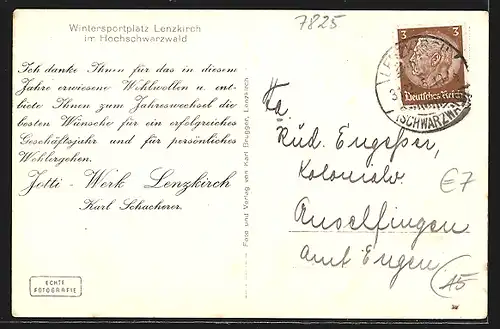 Wintersportplatz Lenzkirch
im Hochschwarzwald
Ich danke Ihnen für das in diesem
Jahre erwiesene Wohlwollen u. ent-
biete Ihnen zum Jahreswechsel die
besten Wünsche für ein erfolgreiches
Geschäftsjahr und für persönliches
Wohlergehen.
Jotti - Werk Lenzkirch
Karl Schacherer.
ECHTE
FOTOGRAFIE
Foto und Verlag von Karl Brugger, Lenzkirch
7825
3 3
Deutsches Reich
LENZKIRCH
(SCHWARZWALD)
Fa.
Rud. Engesser,
Kolonialw.
Anselfingen
Amt Engen
E7
A5